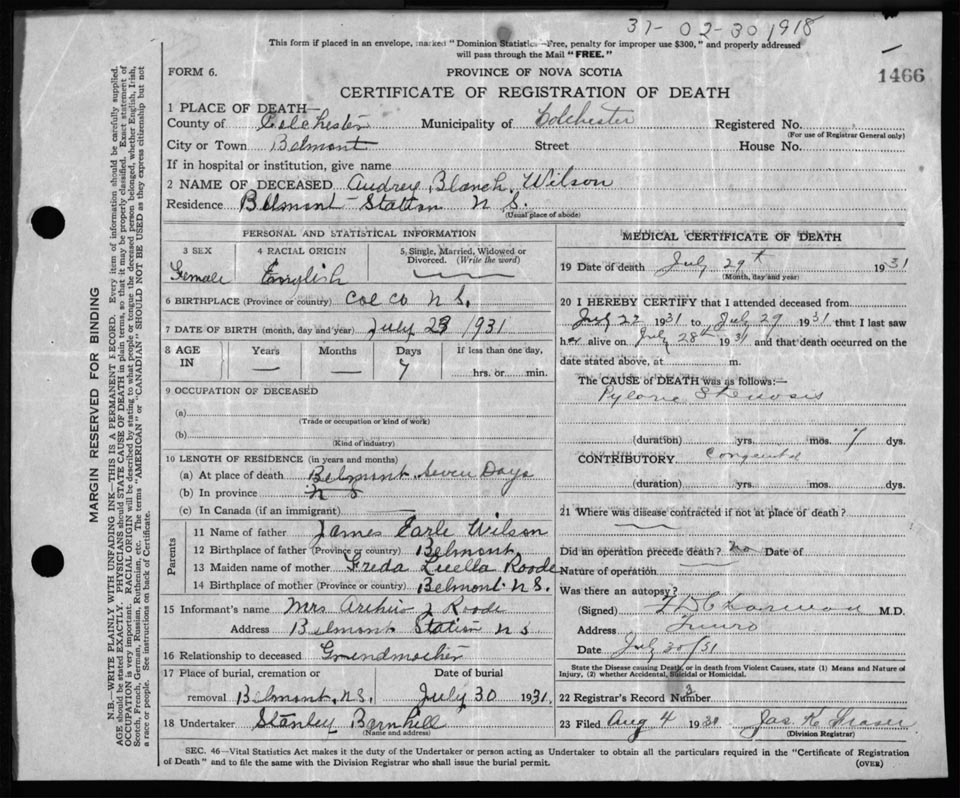 31-02-30 1918
This form if placed in an envelope, marked "Dominion Statistics—Free, penalty for improper use $300," and properly addressed
will pass through the Mail "FREE."
1466
FORM 6.
PROVINCE OF NOVA SCOTIA
CERTIFICATE OF REGISTRATION OF DEATH
1 PLACE OF DEATH—
County of Colchester Municipality of Colchester Registered No.
(For use of Registrar General only)
City or Town Belmont Street House No.
If in hospital or institution, give name
2 NAME OF DECEASED Audrey Blanch. Wilson
Residence Belmont Station N S.
(Usual place of abode)
PERSONAL AND STATISTICAL INFORMATION
3 SEX 4 RACIAL ORIGIN 5 Single, Married, Widowed or Divorced. (Write the word)
Female English
6 BIRTHPLACE (Province or country) Col co N S.
7 DATE OF BIRTH (month, day and year) July 23 1931
8 AGE IN Years Months Days If less than one day,
— — 7 hrs. or min.
9 OCCUPATION OF DECEASED
(a)
(Trade or occupation or kind of work)
(b)
(Kind of industry)
10 LENGTH OF RESIDENCE (in years and months)
(a) At place of death Belmont Seven Days
(b) In province N S
(c) In Canada (if an immigrant)
Parents
11 Name of father James Earle Wilson
12 Birthplace of father (Province or country) Belmont
13 Maiden name of mother Freda Luella Roode
14 Birthplace of mother (Province or country) Belmont N S.
15 Informant's name Mrs Arthur Roode
Address Belmont Station N S
16 Relationship to deceased Grandmother
17 Place of burial, cremation or Date of burial
removal Belmont, N.S. July 30 1931
18 Undertaker Stanley Barnhill
(Name and address)
MEDICAL CERTIFICATE OF DEATH
19 Date of death July 29th 1931
(Month, day and year)
20 I HEREBY CERTIFY that I attended deceased from
July 22 1931 to July 29 1931 that I last saw
her alive on July 28th 1931 and that death occurred on the
date stated above, at m.
The CAUSE of DEATH was as follows:—
Pyloric Stenosis
(duration) yrs. mos. 7 dys.
CONTRIBUTORY Congenital
(duration) yrs. mos. dys.
21 Where was disease contracted if not at place of death?
Did an operation precede death? No Date of
Nature of operation
Was there an autopsy?
(Signed) M.D.
Address Truro
Date July 30/31
State the Disease causing Death, or in death from Violent Causes, state (1) Means and Nature of
Injury, (2) whether Accidental, Suicidal or Homicidal.
22 Registrar's Record Number 3
23 Filed Aug 4 1931 Jas K Fraser
(Division Registrar)
SEC. 46—Vital Statistics Act makes it the duty of the Undertaker or person acting as Undertaker to obtain all the particulars required in the "Certificate of Registration
of Death" and to file the same with the Division Registrar who shall issue the burial permit.
(OVER)
MARGIN RESERVED FOR BINDING
N.B.—WRITE PLAINLY WITH UNFADING INK—THIS IS A PERMANENT RECORD. Every item of information should be carefully supplied.
AGE should be stated EXACTLY. PHYSICIANS should STATE CAUSE OF DEATH in plain terms, so that it may be properly classified. Exact statement of
OCCUPATION is very important. RACIAL ORIGIN will be described by stating to what people or tongue the deceased person belonged, whether English, Irish,
Scotch, French, German, Russian, Ruthenian, etc. The terms "AMERICAN" or "CANADIAN" SHOULD NOT BE USED as they express citizenship but not
a race or people. See instructions on back of Certificate.